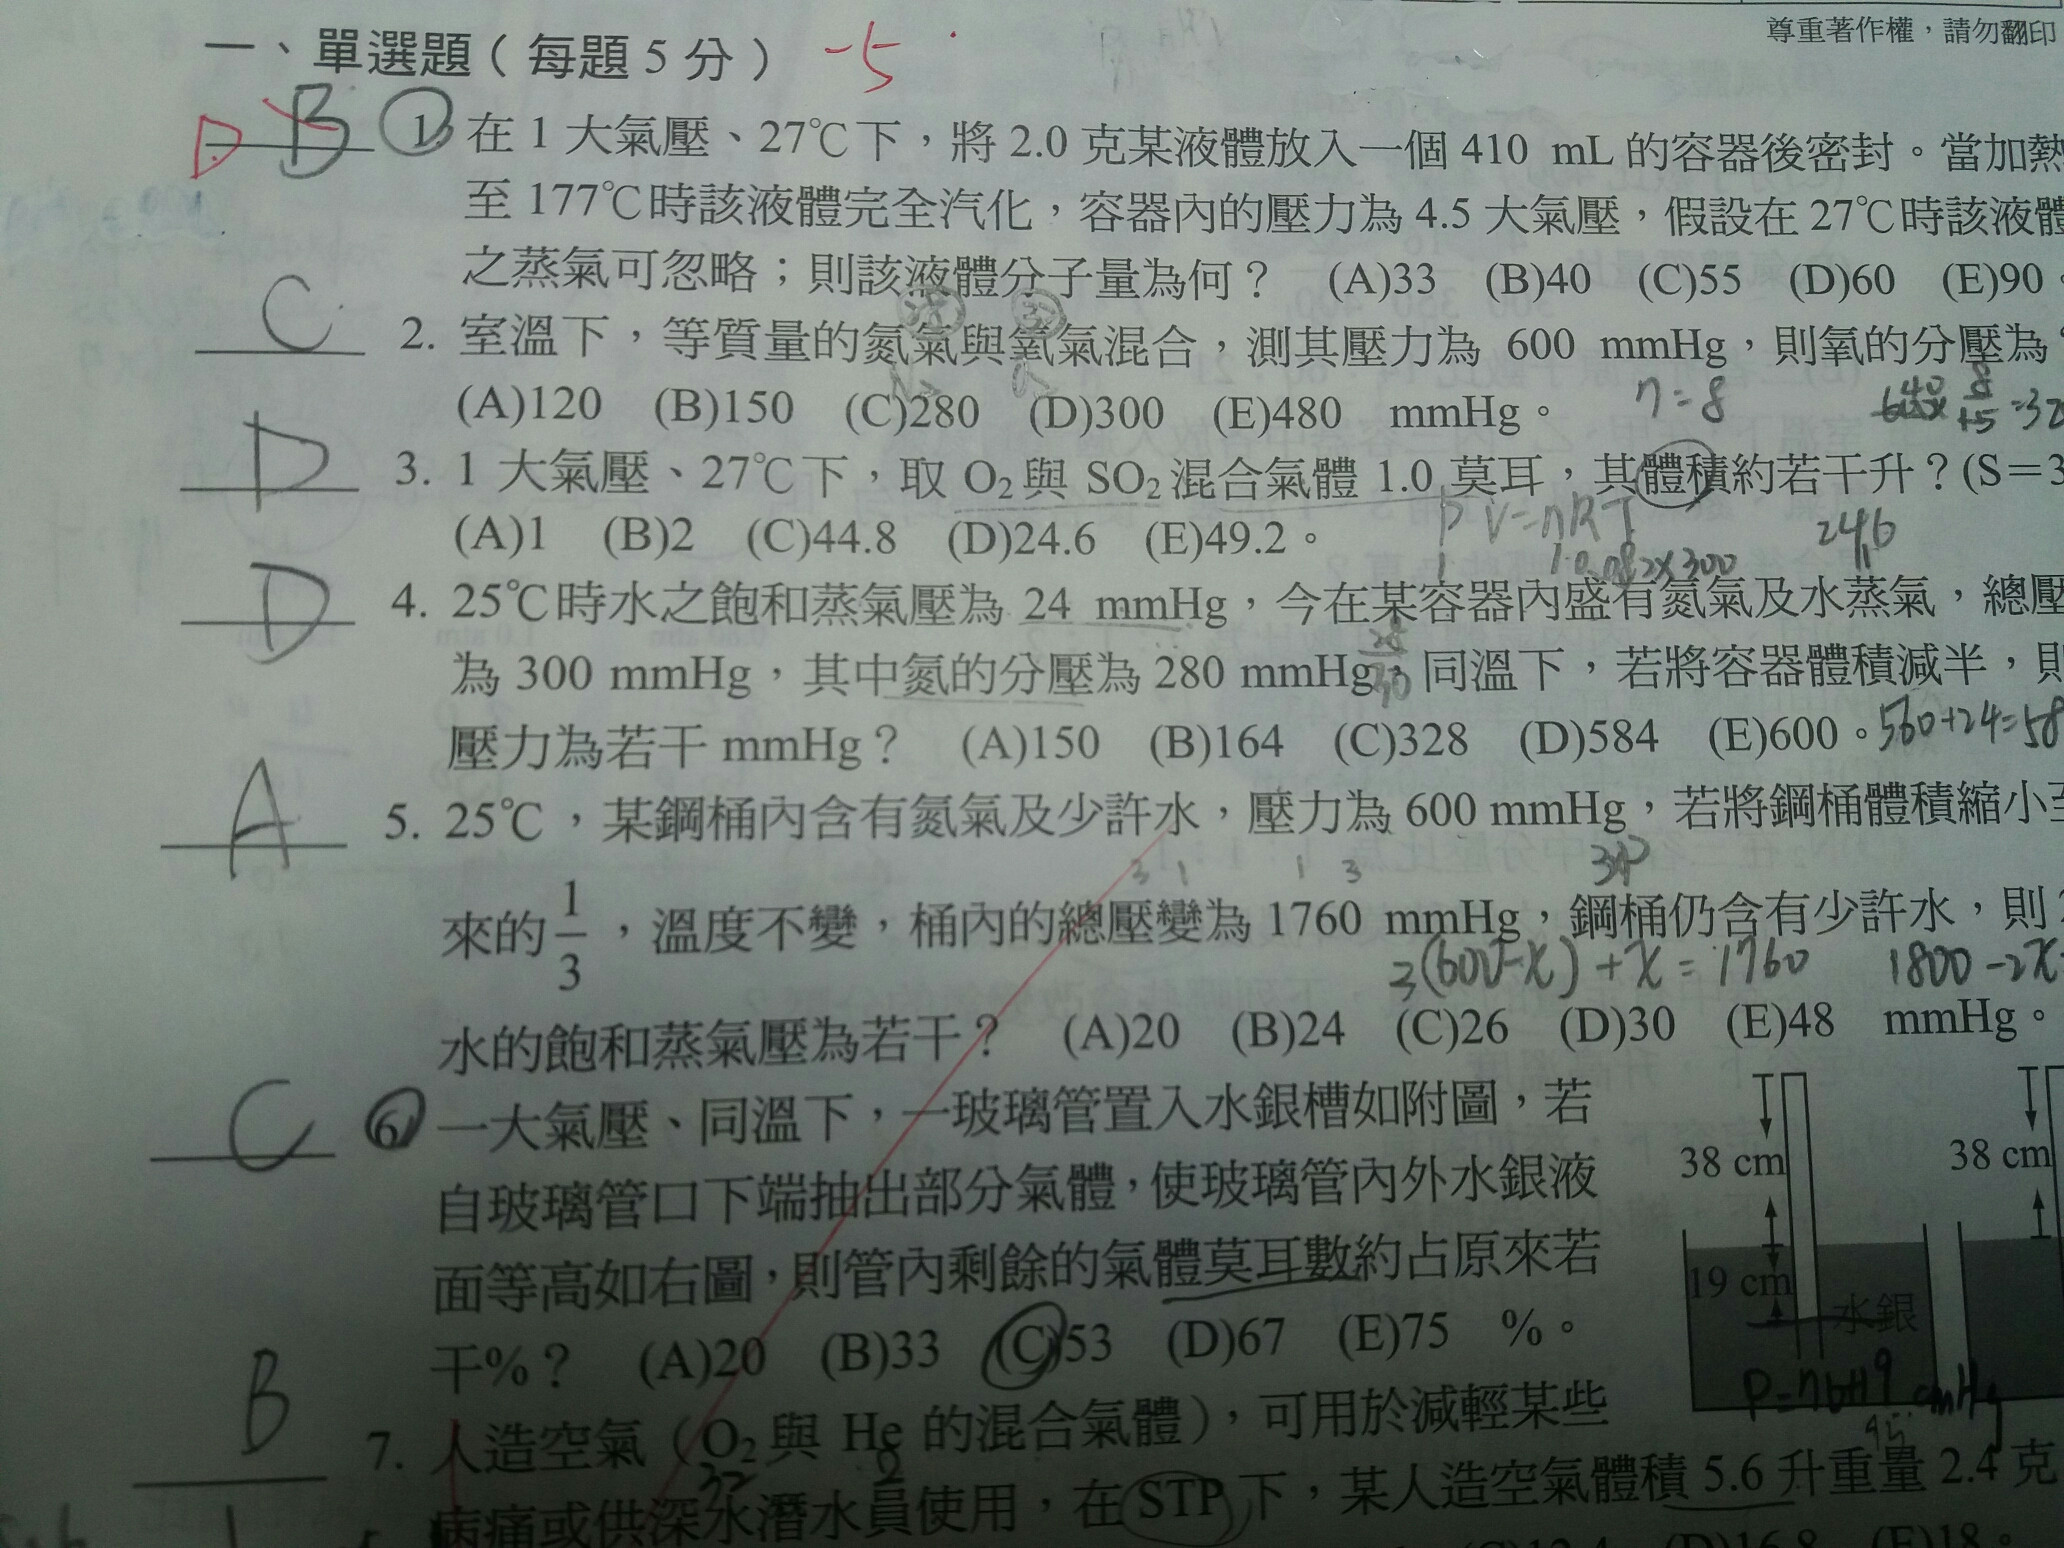 尊重著作權，請勿翻印
一、單選題（每題5分） -5
D B 1. 在1大氣壓、27℃下，將2.0克某液體放入一個410 mL的容器後密封。當加熱
至177℃時該液體完全汽化，容器內的壓力為4.5大氣壓，假設在27℃時該液體
之蒸氣可忽略；則該液體分子量為何？ (A)33 (B)40 (C)55 (D)60 (E)90。
28 32
C 2. 室溫下，等質量的氮氣與氧氣混合，測其壓力為 600 mmHg，則氧的分壓為
N2 O2
(A)120 (B)150 (C)280 (D)300 (E)480 mmHg。 n=8
D 3. 1大氣壓、27℃下，取O2與SO2混合氣體1.0莫耳，其體積約若干升？(S=3
PV=nRT
(A)1 (B)2 (C)44.8 (D)24.6 (E)49.2。
1 1·0.082×300 24.6
D 4. 25℃時水之飽和蒸氣壓為 24 mmHg，今在某容器內盛有氮氣及水蒸氣，總壓
為300 mmHg，其中氮的分壓為280 mmHg，同溫下，若將容器體積減半，則
壓力為若干mmHg？ (A)150 (B)164 (C)328 (D)584 (E)600。560+24=58
A 5. 25℃，某鋼桶內含有氮氣及少許水，壓力為600 mmHg，若將鋼桶體積縮小至
3 1 1 3 3P
來的1/3，溫度不變，桶內的總壓變為1760 mmHg，鋼桶仍含有少許水，則
3(600-x)+x=1760 1800-2x
水的飽和蒸氣壓為若干？ (A)20 (B)24 (C)26 (D)30 (E)48 mmHg。
C 6. 一大氣壓、同溫下，一玻璃管置入水銀槽如附圖，若
自玻璃管口下端抽出部分氣體，使玻璃管內外水銀液
面等高如右圖，則管內剩餘的氣體莫耳數約占原來若
干%？ (A)20 (B)33 (C)53 (D)67 (E)75 %。
38 cm
38 cm
19 cm
水銀
P=76+19 cmHg
95
B 7. 人造空氣（O2與He的混合氣體），可用於減輕某些
32 2
病痛或供深水潛水員使用，在STP下，某人造空氣體積5.6升重量2.4克
(D)16.8 (E)18。